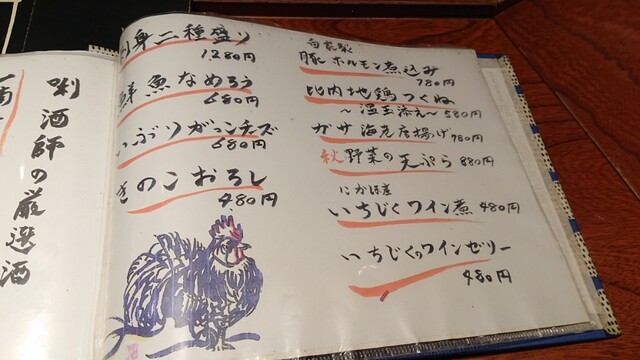 身二種盛り
1280円
鮮魚なめろう
680円
いぶりがっコチーズ
680円
きのこおろし
480円
自家製
豚ホルモン煮込み
780円
比内地鶏つくね
～温玉添え～580円
ガサ海老唐揚げ780円
秋野菜の天ぷら880円
にかほ産
いちじくワイン煮 480円
いちじくのワインゼリー
480円
唎酒師の厳選酒